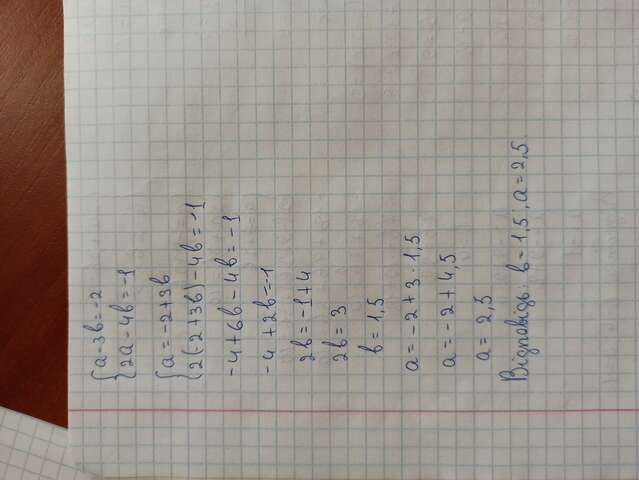 {a-3b=-2
{2a-4b=-1
{a=-2+3b
{2(-2+3b)-4b=-1
-4+6b-4b=-1
-4+2b=-1
2b=-1+4
2b=3
b=1,5
a=-2+3·1,5
a=-2+4,5
a=2,5
Відповідь: b=1,5, a=2,5.